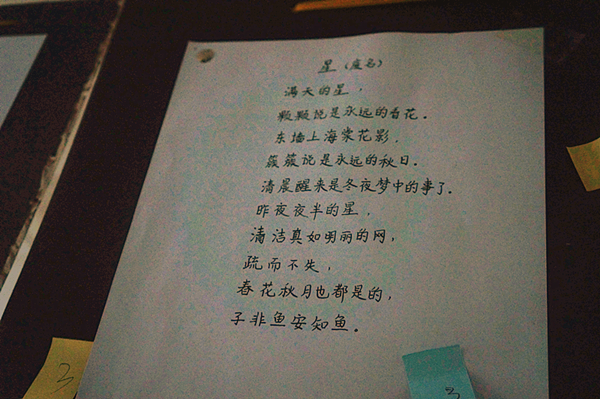 星（废名）
满天的星，
颗颗说是永远的春花。
东墙上海棠花影，
簇簇说是永远的秋月。
清晨醒来是冬夜梦中的事了。
昨夜夜半的星，
清洁真如明丽的网，
疏而不失，
春花秋月也都是的，
子非鱼安知鱼。
3
3